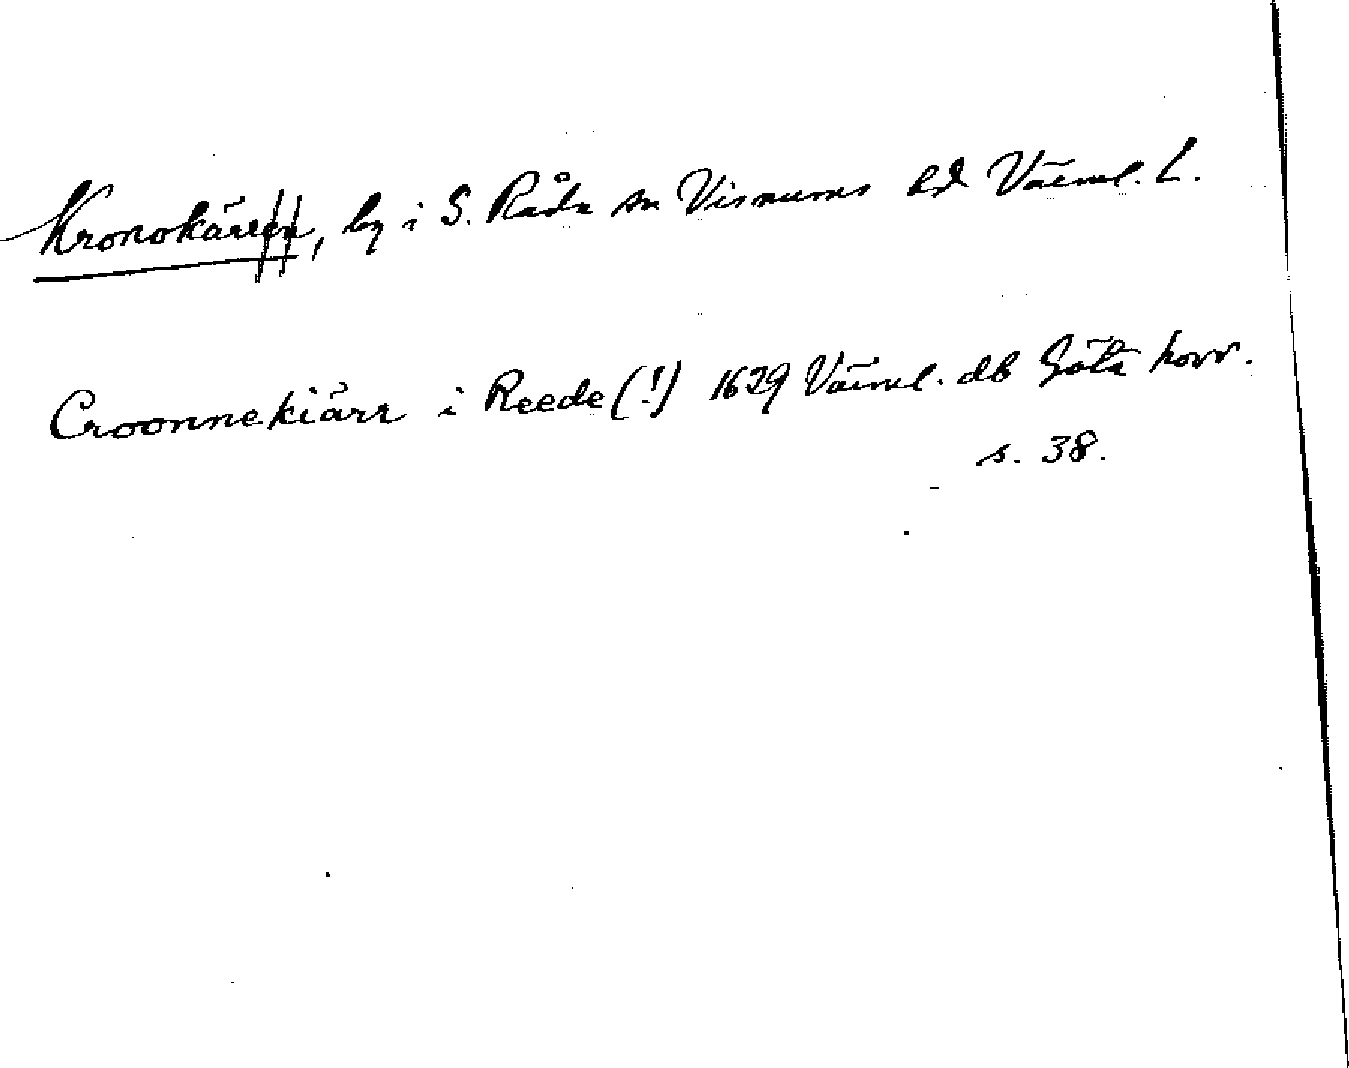 Kronokärren, by i S. Råda sn Visnums hd Värml. L.
Croonnekiärr i Reede (!) 1629 Värml. db Göta hovr.
s. 38.